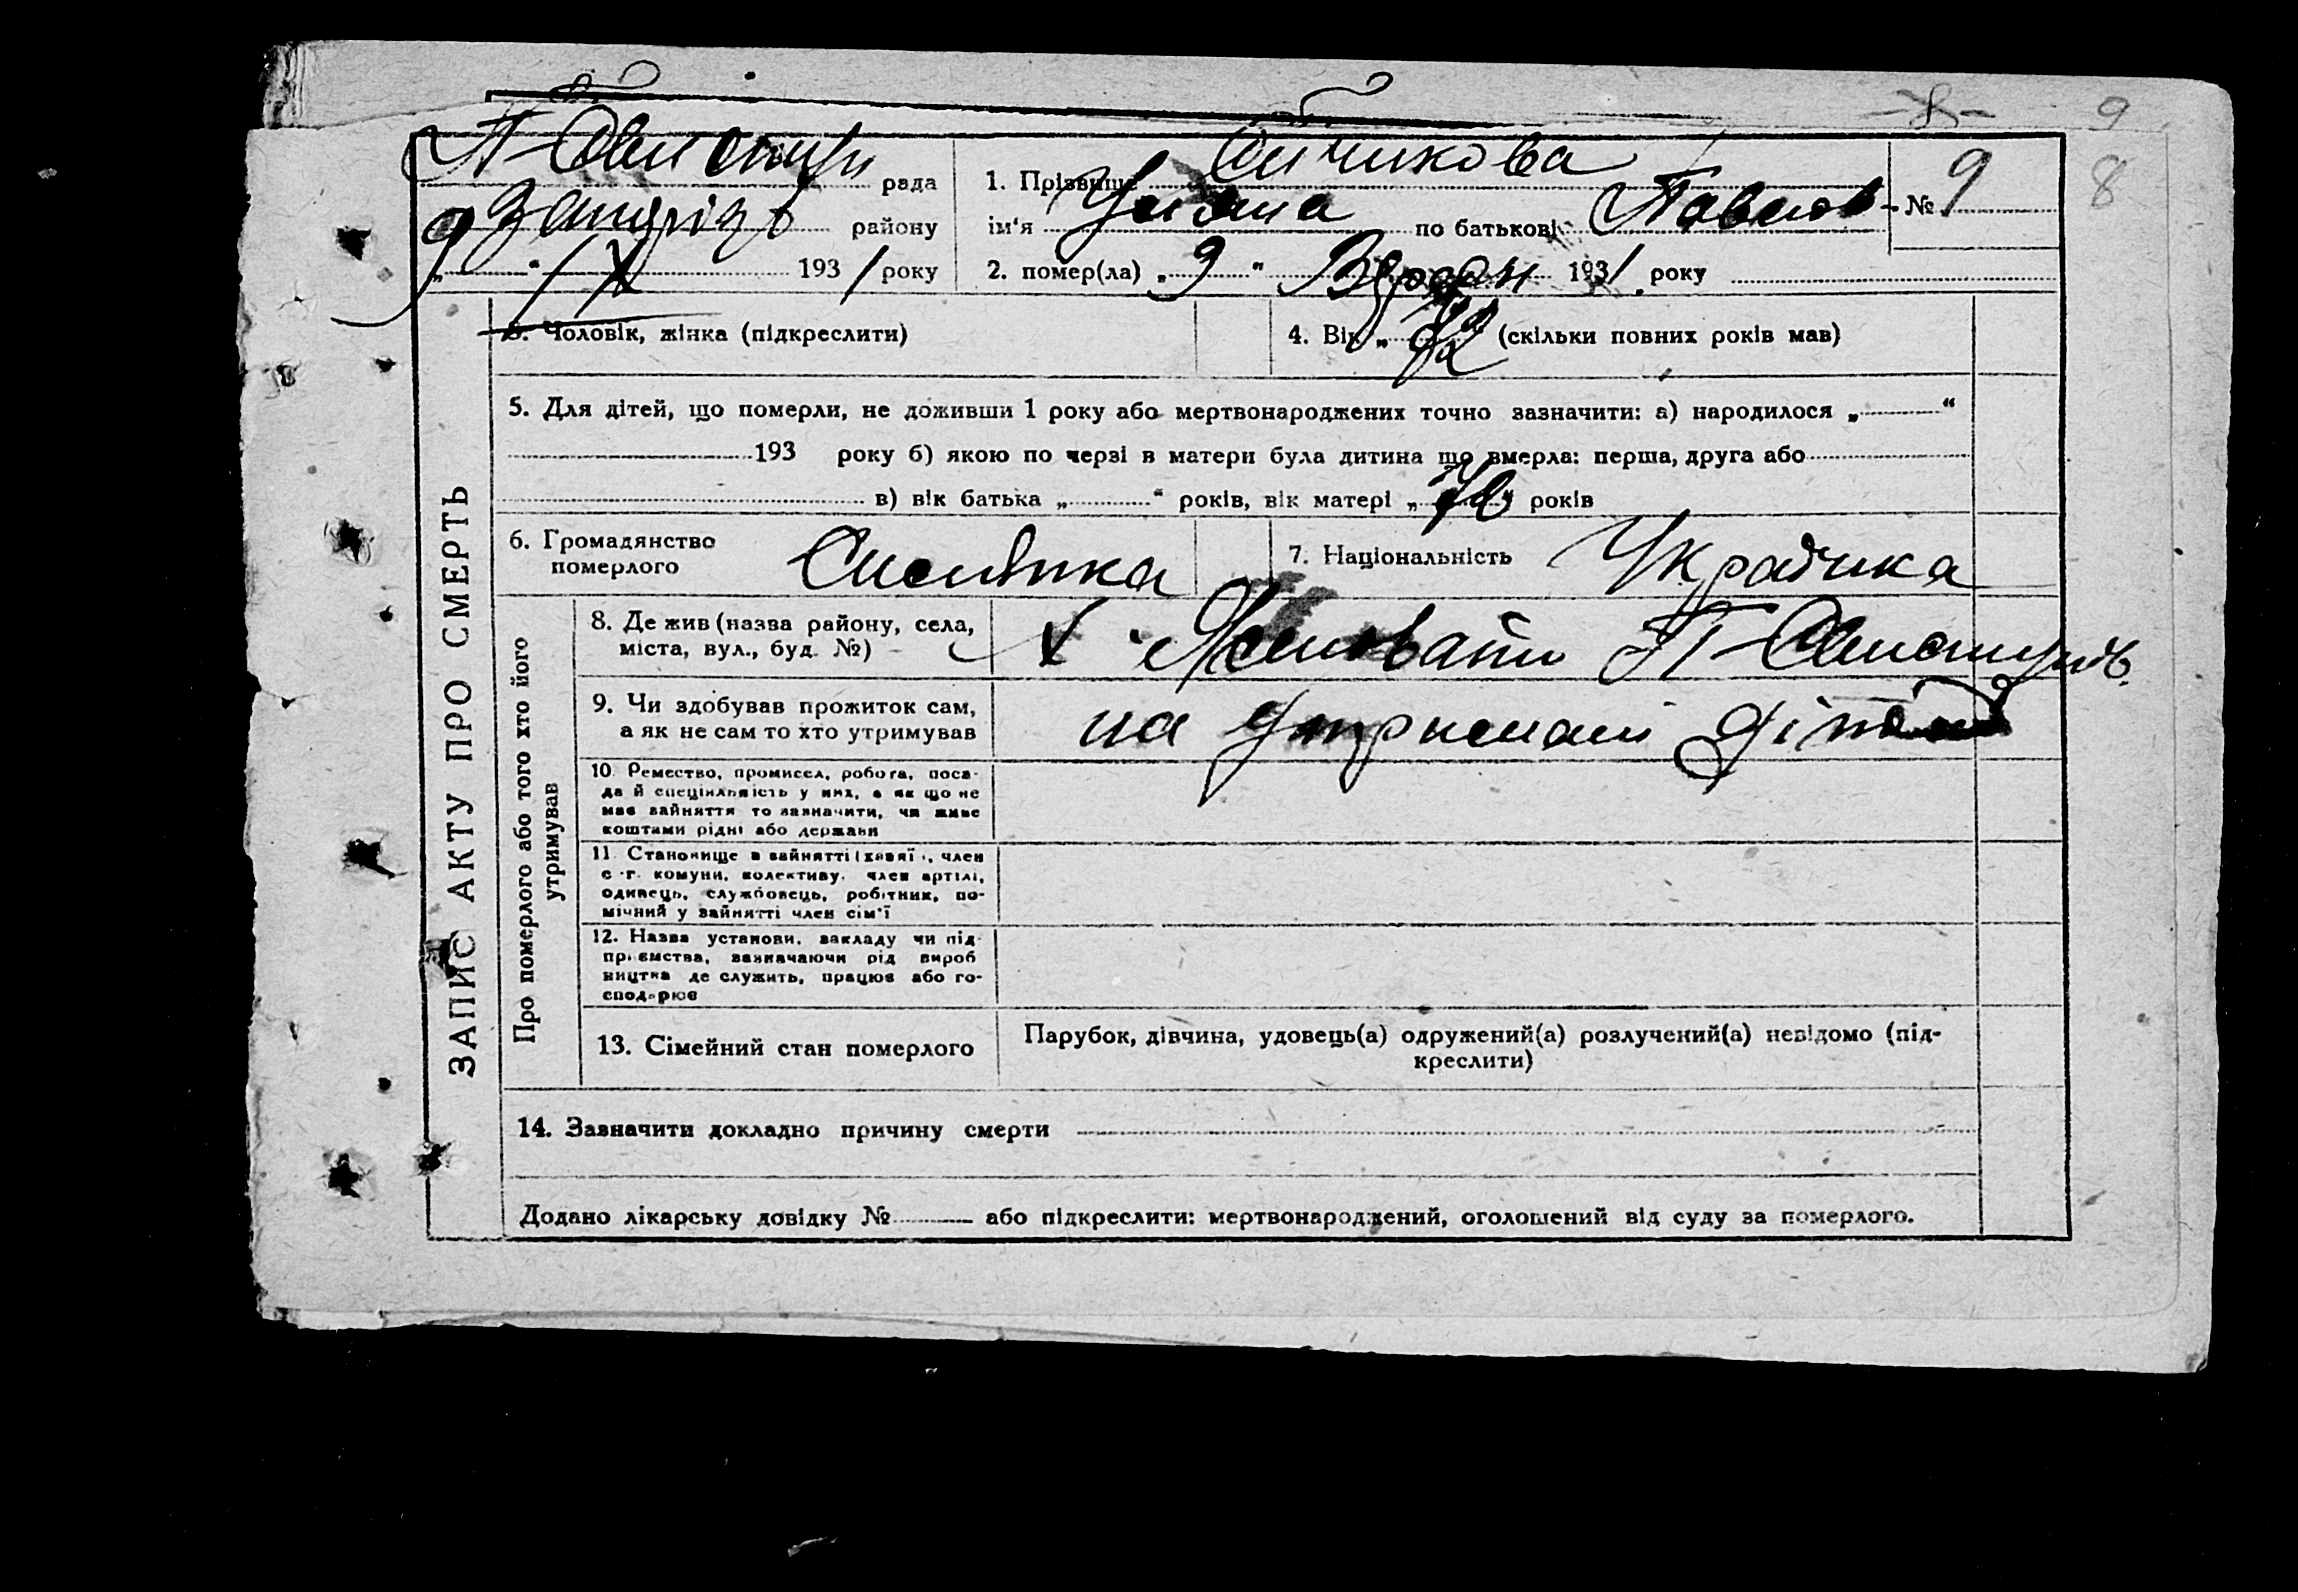 -8- 9
рада 1. Прізвище Сичикова № 9 8
району ім'я Уляна по батькові Павлов
9 " IX 1931 року 2. помер(ла) „ 9 " 1931 року
3. Чоловік, жінка (підкреслити) 4. Вік „ (скільки повних років мав)
5. Для дітей, що померли, не доживши 1 року або мертвонароджених точно зазначити: а) народилося „ “
193 року б) якою по черзі в матери була дитина що вмерла: перша, друга або
в) вік батька „ “ років, вік матері „ " років
6. Громадянство померлого 7. Національність Українка
8. Де жив (назва району, села,
міста, вул., буд. №) х.
9. Чи здобував прожиток сам,
а як не сам то хто утримував на
10. Ремество, промисел, робота, поса-
да й спеціяльність у них, а як що не
має зайняття то зазначити, чи живе
коштами рідні або держави
11. Становище в зайнятті (хазяїн, член
с.-г. комуни, колективу, член артілі,
одинець, службовець, робітник, по-
мічний у зайнятті член сім'ї
12. Назва установи, закладу чи під-
приємства, зазначаючи рід вироб
ництва де служить, працює або го-
сподарює
13. Сімейний стан померлого Парубок, дівчина, удовець(а) одружений(а) розлучений(а) невідомо (під-
креслити)
14. Зазначити докладно причину смерти
Додано лікарську довідку № або підкреслити: мертвонароджений, оголошений від суду за померлого.
ЗАПИС АКТУ ПРО СМЕРТЬ
Про померлого або того хто його
утримував